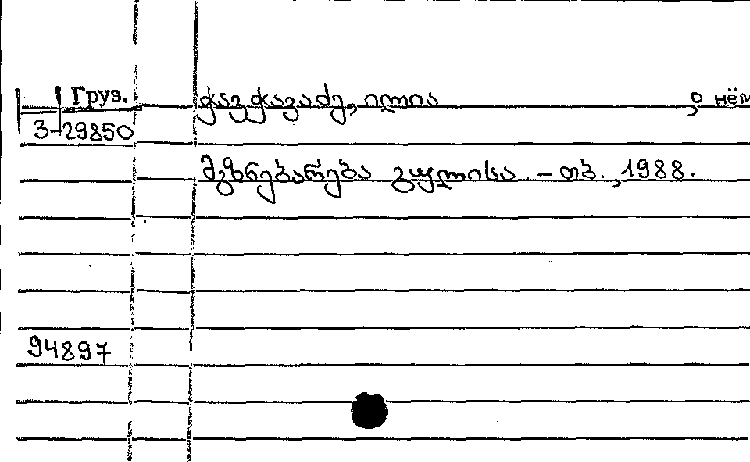 Груз. ჭავჭავაძე, ილია, о нём
3-29850
მგზნებარება გულისა. – თბ., 1988.
94897